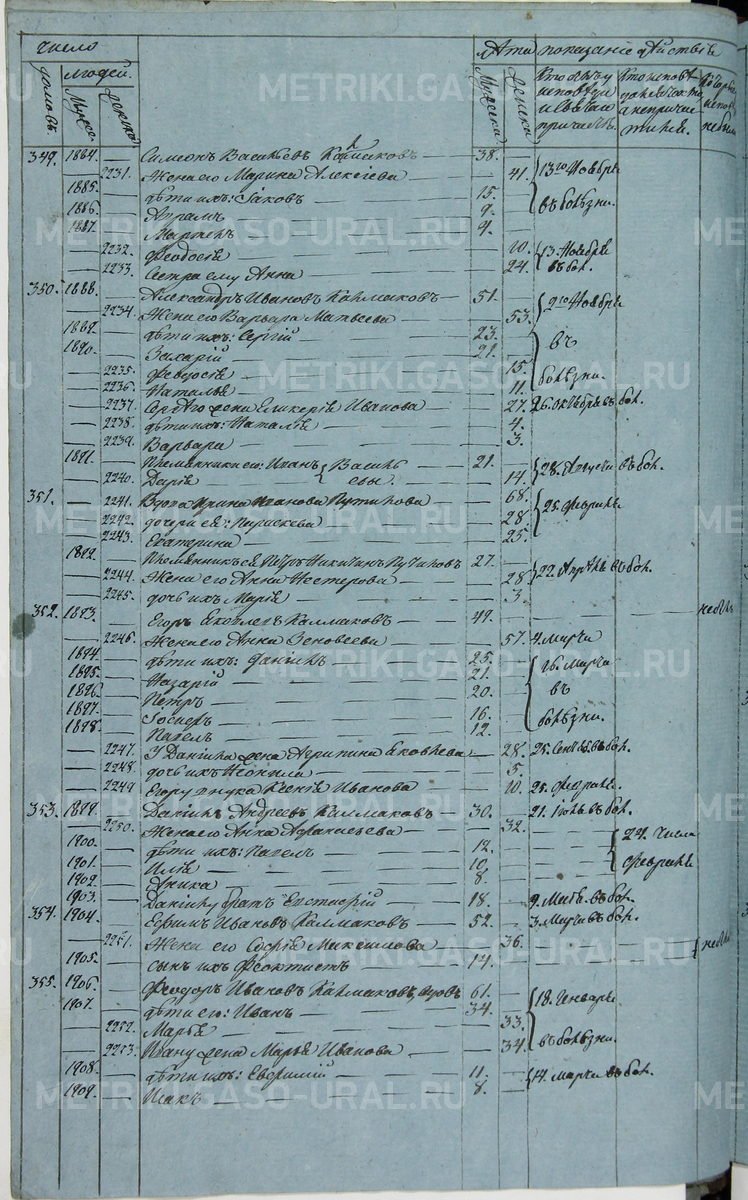 число
лѣта показаніе дѣйства
домовъ
людей
мужеск
женска
Мужеска
женска
Кто былъ у исповѣди и Святаго причаст.
Кто исповѣдовался токмо а не причастился
Которые у исповѣди небыли
349. 1884. Симеонъ Васильевъ Калмаковъ 38.
2231. Жена его Марина Алексіева 41. 13го Ноября
1885. дѣти ихъ: Іаковъ 15.
1886. Апрамъ 9. въ болѣзни.
1887. Мартенъ 4.
2232. Феодосія 10. 13. Ноября
2233. Сестра ему Анна 24. въ бол.
350. 1888. Александръ Ивановъ Калмаковъ 51.
2234. Жена его Варвара Матвеева 53. 2го Ноября
1889. дѣти ихъ: Сергій 23.
1890. Захарій 21. въ
2235. Феодосія 15.
2236. Наталья 11. болѣзни.
2237. Сергѣю жена Гликерія Иванова 27. 26. Октября въ бол.
2238. дѣти ихъ: Наталія 4.
2239. Варвара 3.
1891. Племянники его: Иванъ Василь 21.
2240. Дарія евы. 14. 28. Августа въ бол.
351. 2241. Вдова Ирина Иванова Путилова 68.
2242. дочери ея: Параскева 28. 25. Февраля.
2243. Екатерина 25.
1892. Племянникъ ея Петръ Никитинъ Путиловъ 27.
2244. Жена его Анна Нестерова 28. 22. Апрѣля въ бол.
2245. дочь ихъ Марія 3.
352. 1893. Егоръ Яковлевъ Калмаковъ 49. небылъ
2246. Жена его Анна Зеновеева 57. 4. Марта
1894. дѣти ихъ: Даніилъ 25.
1895. Назарій 21. 16. Марта
1896. Петръ 20. въ
1897. Іосифъ 16.
1898. Павелъ 12. болѣзни.
2247. У Даніила жена Агрипина Яковлева 28. 25. Сент. въ бол.
2248. дочь ихъ Неонила 5.
2249. Егору внука Ксенія Иванова 10. 25. Февраля.
353. 1899. Даніилъ Андреевъ Калмаковъ 30. 21. Іюля въ бол.
2250. Жена его Анна Афанасьева 32.
1900. дѣти ихъ: Павелъ 12. 24. Числа
1901. Илія 10. Февраля
1902. Аника 8.
1903. Даніилу братъ Евстафій 18. 9. Маія въ бол.
354. 1904. Ефимъ Ивановъ Калмаковъ 52. 3. Марта въ бол.
2251. Жена его Софія Максимова 36.
1905. сынъ ихъ Феоктистъ 14. небыли
355. 1906. Феодоръ Ивановъ Калмаковъ, вдовъ 61.
1907. дѣти его: Иванъ 34. 18. Генваря
2252. Марья 33.
2253. Ивану жена Марья Иванова 34. въ болѣзни.
1908. дѣти ихъ: Евфимій 11. 14. Марта въ бол.
1909. Исакъ 8.
METRIKI.GASO-URAL.RU